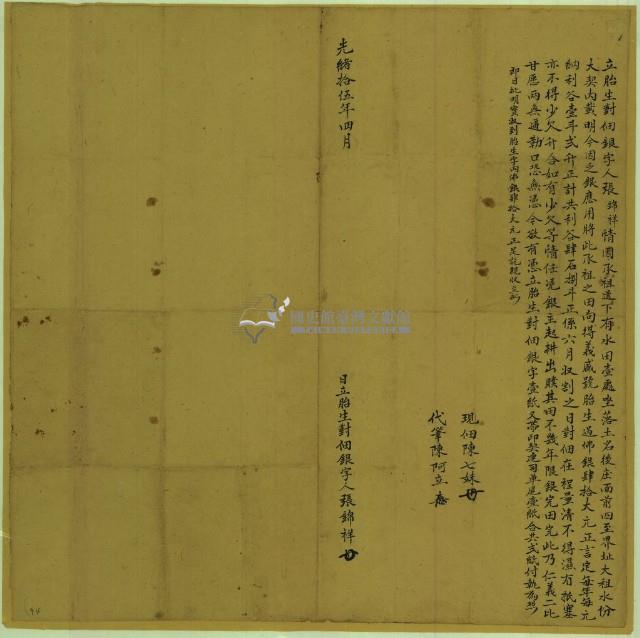 立胎生對佃銀字人張錦祥情因承祖遺下有水田壹處坐落土名後庄面前四至界址大租水份
大契內載明今因乏銀應用將此承祖之田向得義盛號胎生過佛銀肆拾大元正言定每年每元
納利谷壹斗弍升正計共利谷肆石捌斗正係六月收割之日對佃在裎量清不得濕有抵塞
亦不得少欠升合如有少欠等情任從銀主起耕出贌其田不幾年限銀完田完此乃仁義二比
甘愿兩無逼勒口恐無憑今欲有憑立胎生對佃銀字壹紙又帶印契連司單尾壹紙合共弍紙付執為炤
即日批明實收到胎生字內佛銀肆拾大元正足訖親收立炤
現佃陳七妹
代筆陳阿立
光緒拾伍年四月
日立胎生對佃銀字人張錦祥
國史館臺灣文獻館
TAIWAN HISTORICA
94